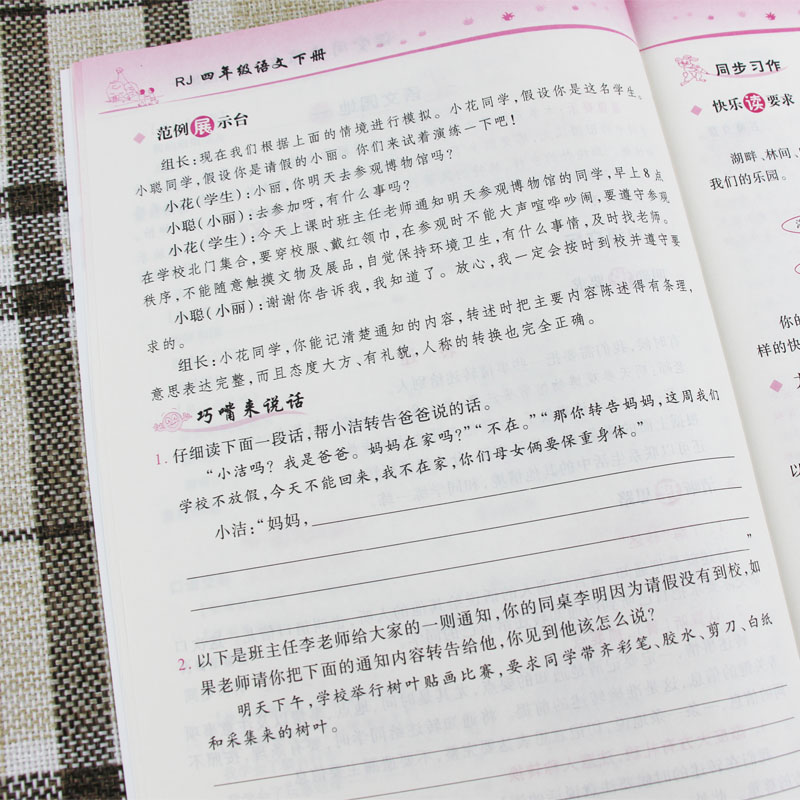 RJ 四年级语文下册
范例展示台
组长:现在我们根据上面的情境进行模拟。小花同学,假设你是这名学生、
小聪同学,假设你是请假的小丽。你们来试着演练一下吧!
小花(学生):小丽,你明天去参观博物馆吗?
小聪(小丽):去参加呀,有什么事吗?
小花(学生):今天上课时班主任老师通知明天参观博物馆的同学,早上8点
在学校北门集合,要穿校服、戴红领巾,在参观时不能大声喧哗吵闹,要遵守参观
秩序,不能随意触摸文物及展品,自觉保持环境卫生,有什么事情,及时找老师。
小聪(小丽):谢谢你告诉我,我知道了。放心,我一定会按时到校并遵守要
求的。
组长:小花同学,你能记清楚通知的内容,转述时把主要内容陈述得有条理,
意思表达完整,而且态度大方、有礼貌,人称的转换也完全正确。
巧嘴来说话
1. 仔细读下面一段话,帮小洁转告爸爸说的话。
“小洁吗?我是爸爸。妈妈在家吗?”“不在。”“那你转告妈妈,这周我们
学校不放假,今天不能回来,我不在家,你们母女俩要保重身体。”
小洁:“妈妈,
”
2. 以下是班主任李老师给大家的一则通知,你的同桌李明因为请假没有到校,如
果老师请你把下面的通知内容转告给他,你见到他该怎么说?
明天下午,学校举行树叶贴画比赛,要求同学带齐彩笔、胶水、剪刀、白纸
和采集来的树叶。
同步习作
快乐读要求
湖畔、林间、
我们的乐园。
你的
样的快
以